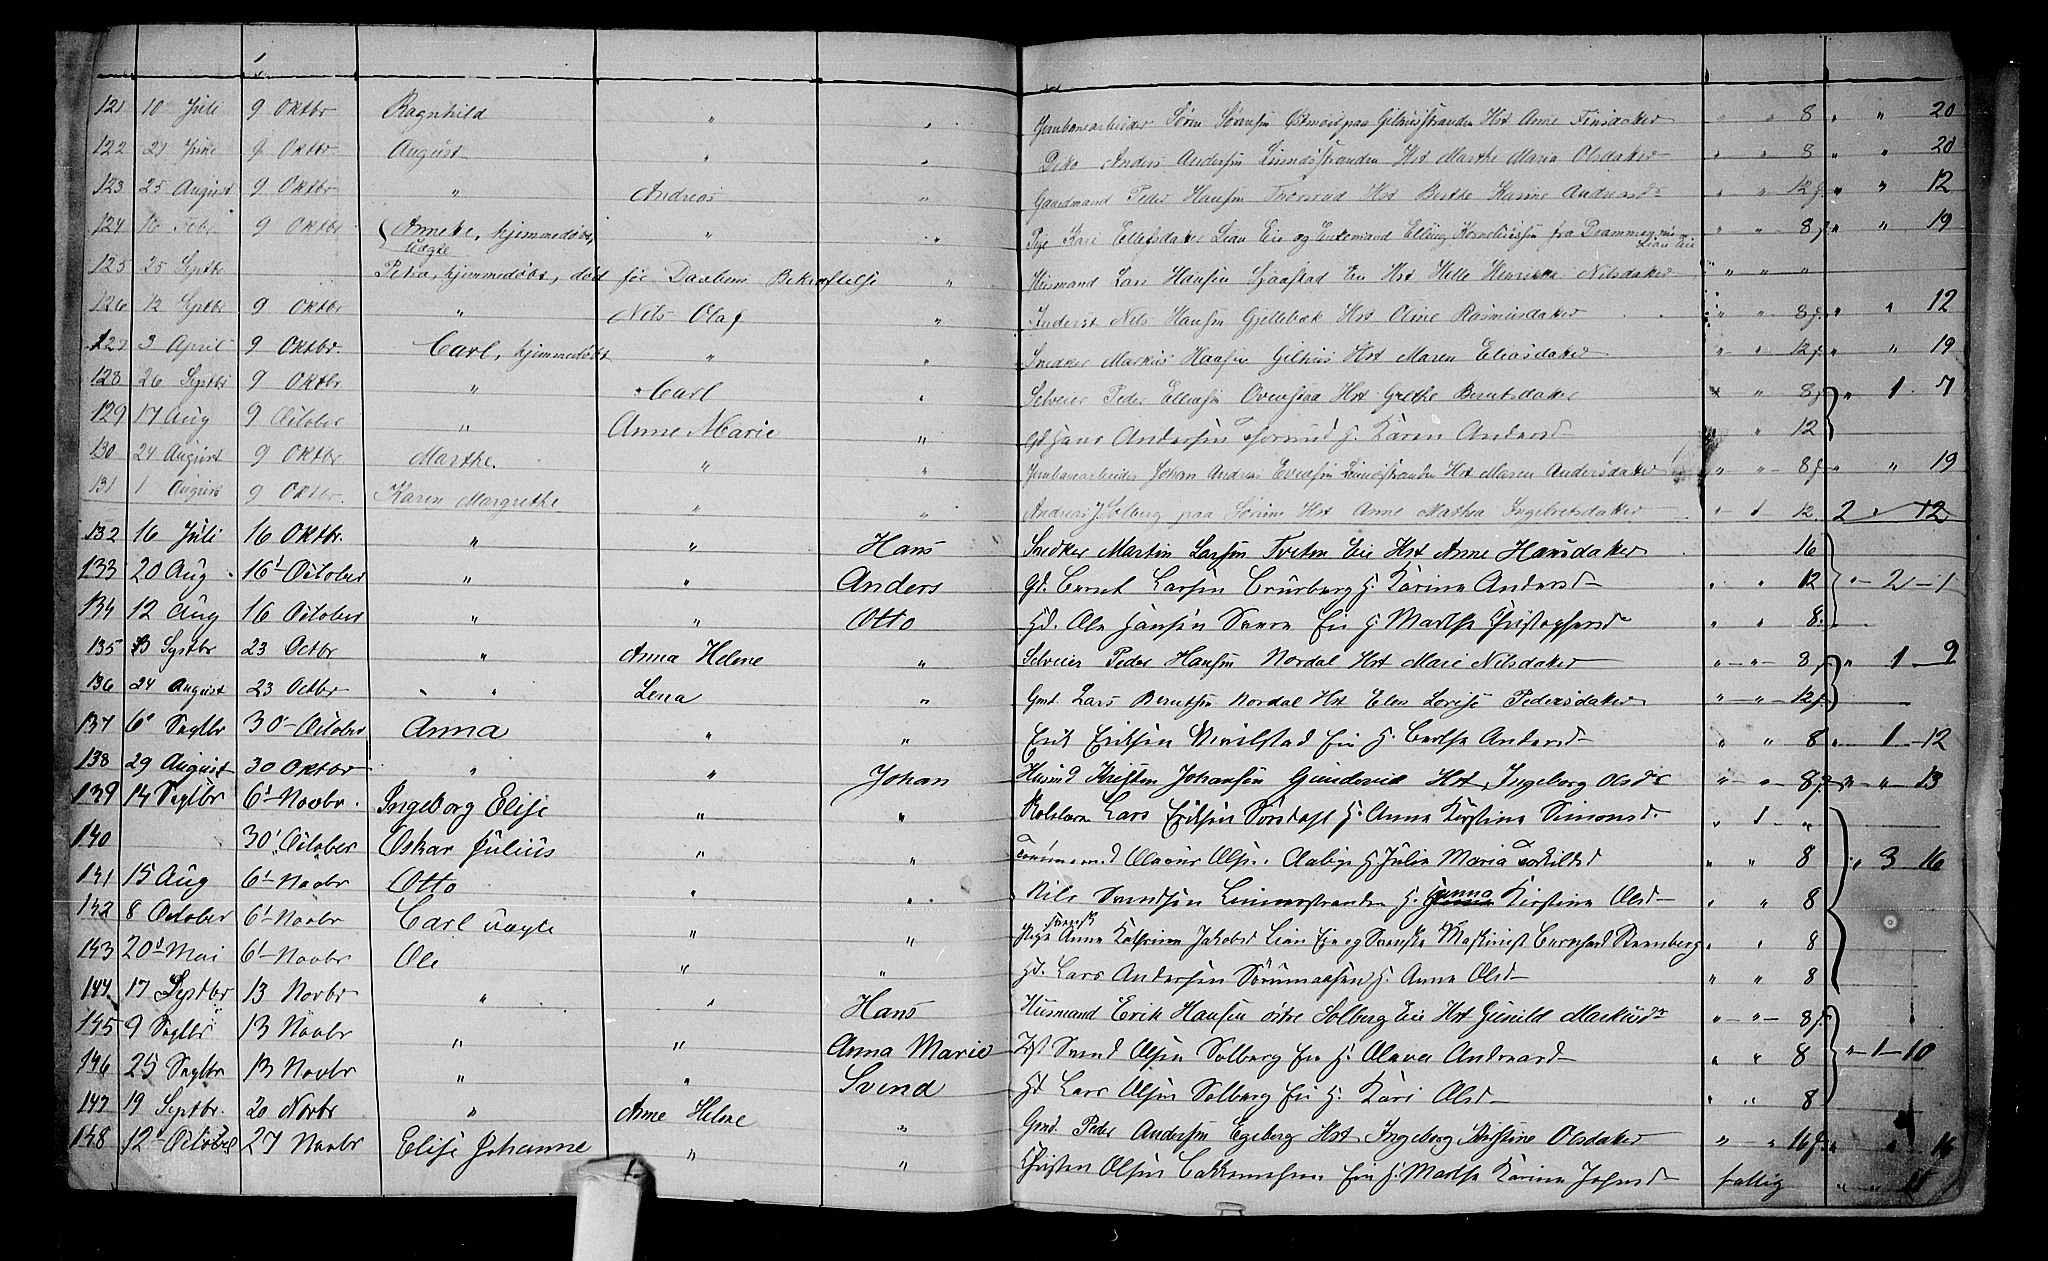 121 10 Juli 9 Oktbr Ragnhild " " Jernbanearbeider Søren Sørensen paa Gilhusstranden Hst Anne Finsdatter " " 8 " " 20
122 21 Juni 9 Oktbr. August " " Do Anders Andersen Linnesstranden Hst Marthe Maria Olsdatter " " 8 " " 20
123 25 August 9 Oktbr " Andreas " Gaardmand Peder Hansen Hst Berthe Karine Andersdr " " 12 f. " " 12
124 10 Febr 9 Oktbr Annete, hjemmedøbt, uægte " " Pige Kari Ellefsdatter Lian Eie og Enkemand Elling Korneliussen fra Drammen, nu Lian Eie " " 8 f " " 19
125 25 Septbr Petra, hjemmedøbt, død før Daabens Bekræftelse " Husmand Lars Hansen Eie Hst Helle Henrikka Nilsdatter " " "
126 12 Septbr 9 Oktbr " Nils Olaf " Inderst Nils Hansen Gjellebæk Hst Oline Rasmusdatter " " 8 f. " " 12
127 3 April 9 Oktbr. Carl, hjemmedøbt " " Snedker Markus Hansen Gilhus Hst Maren Eliasdatter " " 12 f. " " 19
128 26 Septbr 9 Oktbr " Carl " Selveier Peder Ellensen Ovenstaa Hst Grethe Berntsdatter " " 8 f " 1 7
129 17 Aug 9 October " Anne Marie " Gd Hans Andersen H. Karen Andersd " 12
130 24 August 9 Oktbr Marthe. " " Jernbanearbeider Johan Andreas Evensen Linnesstranden Hst Maren Andersdatter " " 8 f. " " 19
131 1 August 9 Oktbr. Karen Margrethe " " Andreas J. Solberg paa Sørum Hst Anne Marthea Ingebretsdatter " 1 12. 2 " 12
132 16 Juli 16 Oktbr. " " Hans Snedker Martin Larsen Tveten Eie Hst Anne Hansdatter 16
133 20 Aug. 16' October " " Anders Gd. Bernt Larsen H. Karine Andersd " " 12 " 2 1
134 12 Aug 16 October " " Otto Hd. Ole Hansen Eie H. Marthe Christophersd " " 8.
135 3 Septbr 23 Octbr " Anna Helene " Selveier Peder Hansen Nordal Hst Mari Nilsdatter " " 8 f. " 1 9
136 24 August 23 Octbr " Lena " Gmd Lars Berntsen Nordal Hst Elen Lovise Pedersdatter " " 12 f.
137 6' Septbr 30' October Anna " " Erik Eriksen Eie H. Berthe Andersd " " 8 " 1 12
138 29 August 30 Oktbr " " Johan Husmd Kristen Johansen Gunderud Hst Ingeborg Olsdr " " 8 f. " " 13
139 14 Septbr 6' Novbr. Ingeborg Elise " " Lars Eriksen H. Anna Kirstina Simonsd. " 1 "
140 30' October Oskar Julius " " Olsen. H. Julia Maria Torkilsd " " 8 " 3 16
141 15 Aug 6' Novbr Otto " " Nils Svendsen Linnesstranden H. Hanna Kirstina Olsd " " 8
142 8 October 6' Novbr Carl uægte " " Pige Svensk Anna Kathrina Jakobsd Lian Eie og Svenske Maskinist Bernhard Strenberg " " 8
143 20' Mai 6' Novbr Ole " " Hd. Lars Andersen H. Anna Olsd " " 8
144. 17 Septbr 13 Novbr " " Hans Husmand Erik Hansen østre Solberg Eie Hst Gunild Markusdr " " 8 f.
145 9 Septbr 13 Novbr " " Anna Marie Svend Olsen Solberg Eie H. Olava Andreasd " " 8 " 1 10
146 25 Septbr 13 Novbr " " Svend Hd Lars Olsen Solberg Eie H. Kari Olsd " " 8
147 19 Septbr. 20 Novbr " Anne Helene " Gmd. Peder Andersen Egeberg Hst Ingeborg Kirstine Olsdatter " " 16 f. " " 16
148 12' October 27 Novbr Elise Johanne " " Christen Olsen Eie H. Marthe Karine Johnsd fattig " "